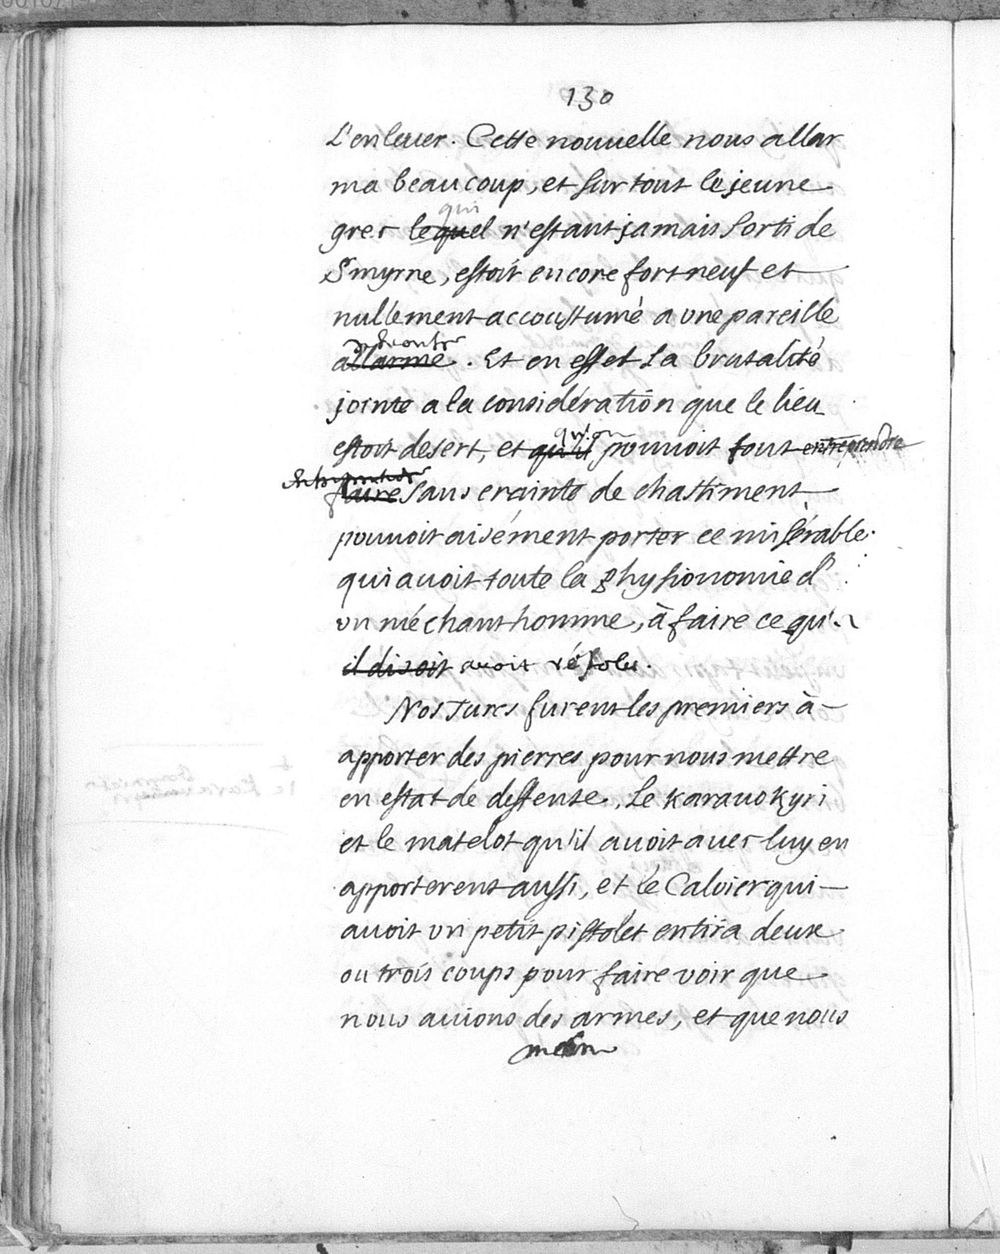 130
L'enleuer. Cette nouuelle nous allar
ma beaucoup, et sur tout le jeune
qui
grec lequel n'estant jamais sorti de
Smyrne, estoit encore fort neuf et
nullement accoustumé a une pareille
allarme. Et en effet La brutalité
jointe a la considération que le lieu
qu'on
estoit desert, et qu'il pouuoit tout entreprendre
faire sans crainte de chastiment
pouuoit aisément porter ce misérable
qui auoit toute la physionomie d'
un méchant homme, à faire ce qu'
il disoit auoir résolu.
Nos Turcs furent les premiers à
apporter des pierres pour nous mettre
en estat de deffense. Le Karauokyri
et le matelot qu'il auoit auec luy en
apporterent aussi, et le Caloier qui
auoit un petit pistolet en tira deux
ou trois coups pour faire voir que
nous auions des armes, et que nous